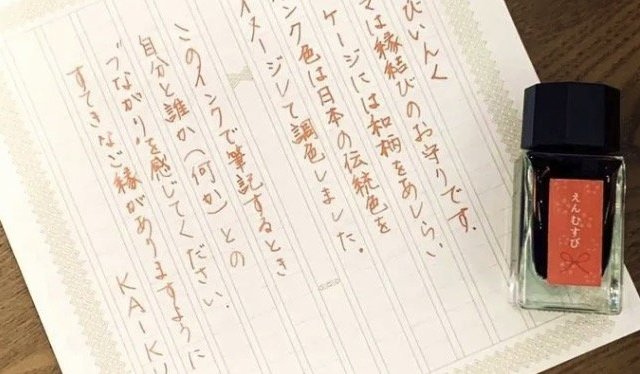 びいんく
は縁結びのお守りです.
ケージには和柄をあしらい
ンク色は日本の伝統色を
イメージして調色しました。
このインクで筆記するとき
自分と誰か(何か)との
"つながり"を感じてください.
すてきなご縁がありますように
KAIKU
えんむすび